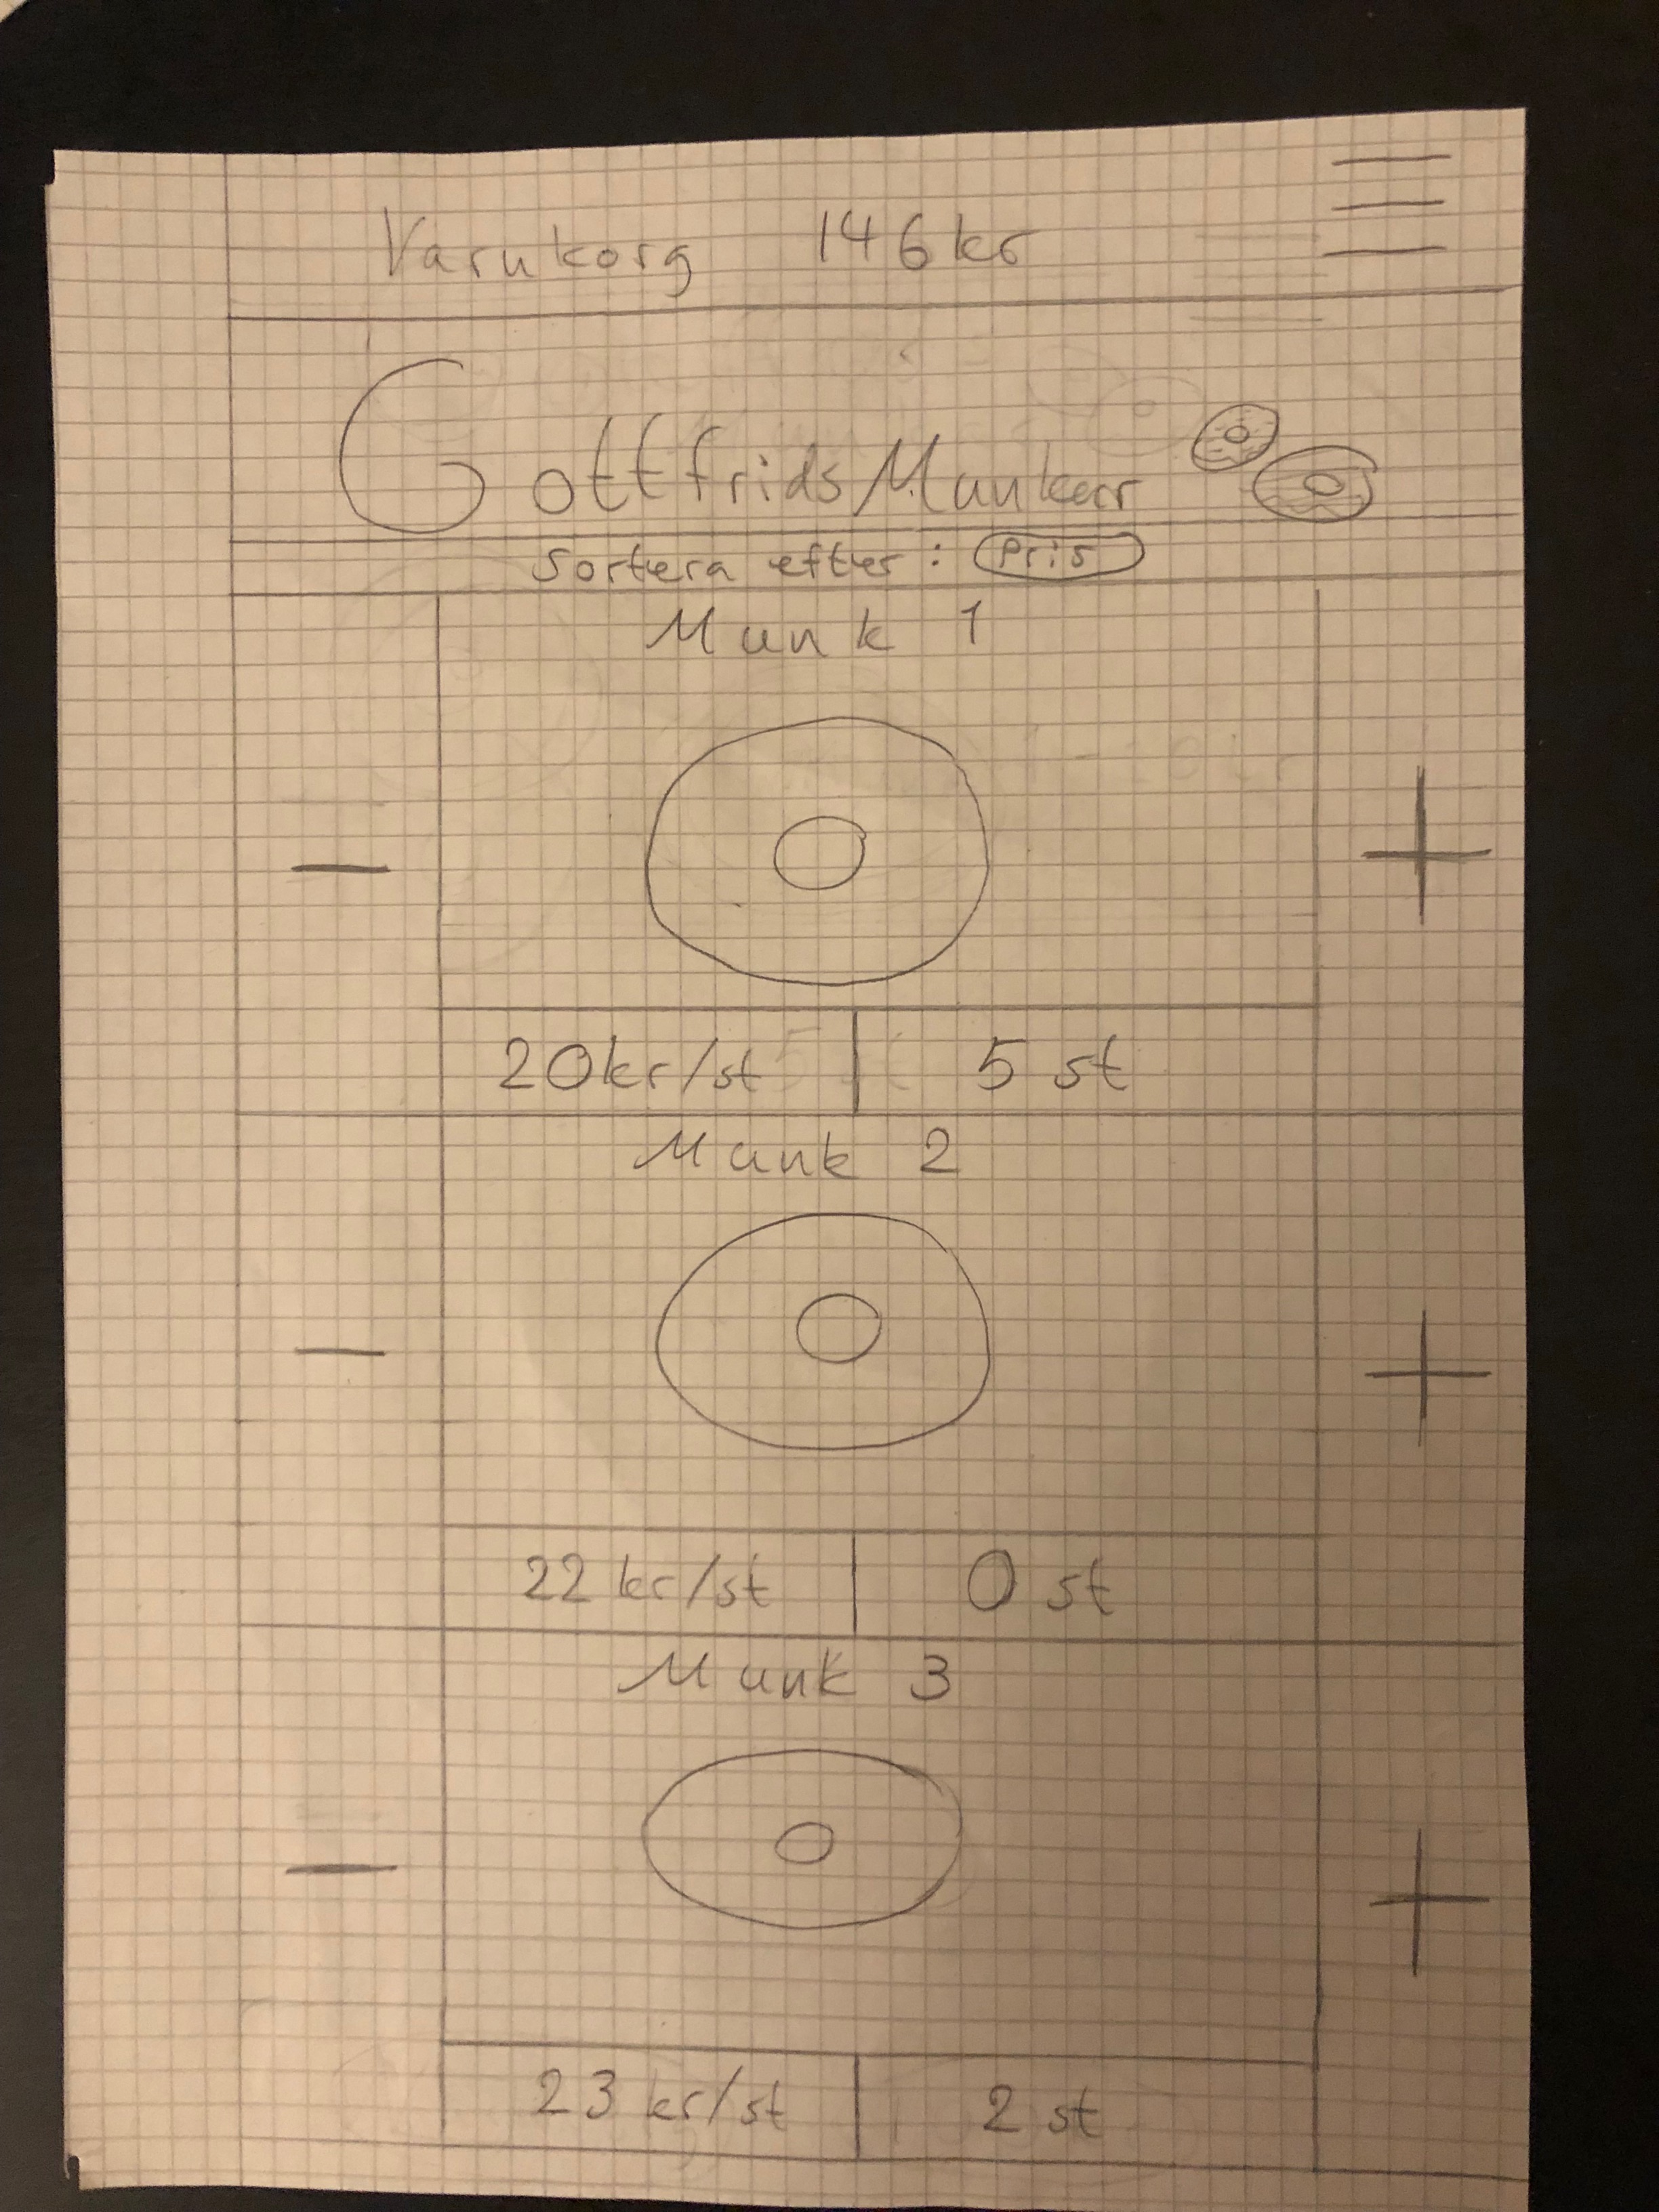 Varukorg 146kr
Gottfrids Munkar
Sortera efter: Pris
Munk 1
- +
20kr/st 5 st
Munk 2
- +
22 kr/st 0 st
Munk 3
- +
23 kr/st 2 st